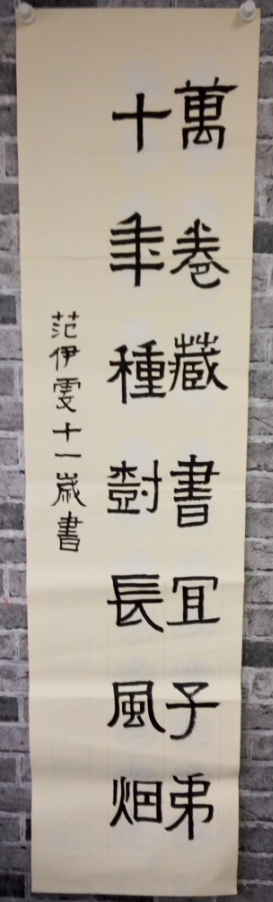 萬卷藏書宜子弟
十年種樹長風烟
范伊雯十一歲書